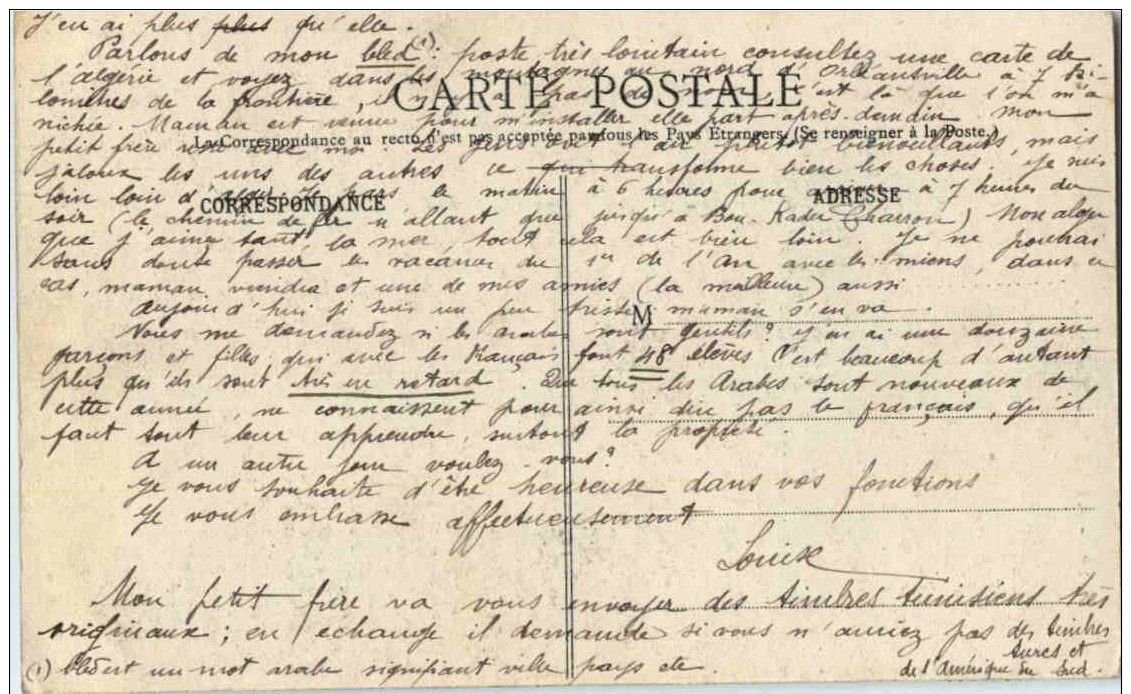 J'en ai plus plus qu'elle.
Parlons de mon bled (1): poste très lointain consultez une carte de
l'algérie et voyez dans les montagnes au nord d'Orléansville à 7 ki-
CARTE POSTALE
lomètres de la frontière, il n'y a pas de c'est là que l'on m'a
nichée. Maman est venue pour m'installer elle part après-demain mon
La Correspondance au recto n'est pas acceptée par tous les Pays Etrangers. (Se renseigner à la Poste.)
petit frère reste avec moi. Les gens ont l'air plutôt bienveillants, mais
jaloux les uns des autres ce qui transforme bien les choses. Je suis
loin loin d'alger. Je pars le matin à 6 heures pour arriver à 7 heures du
CORRESPONDANCE
ADRESSE
soir (le chemin de fer n'allant que jusqu'à Bou-Kader Charron) Mon alger
que j'aime tant, la mer, tout cela est bien loin. Je ne pourrai
sans doute passer les vacances du 1er de l'An avec les miens, dans ce
cas, maman viendra et une de mes amies (la meilleure) aussi
aujourd'hui je suis un peu triste maman s'en va.
M
Vous me demandez si les arabes sont gentils? J'en ai une douzaine
garçons et filles qui avec les Français font 48 élèves C'est beaucoup d'autant
plus qu'ils sont très en retard. Que tous les Arabes sont nouveaux de
cette année, ne connaissent pour ainsi dire pas le français, qu'il
faut tout leur apprendre, surtout la propreté.
A un autre jour voulez-vous?
Je vous souhaite d'être heureuse dans vos fonctions
Je vous embrasse affectueusement
Louise
Mon petit frère va vous envoyer des timbres tunisiens très
originaux; en échange il demande si vous n'auriez pas des timbres
turcs et
de l'Amérique du Sud.
(1) bled est un mot arabe signifiant ville pays etc.